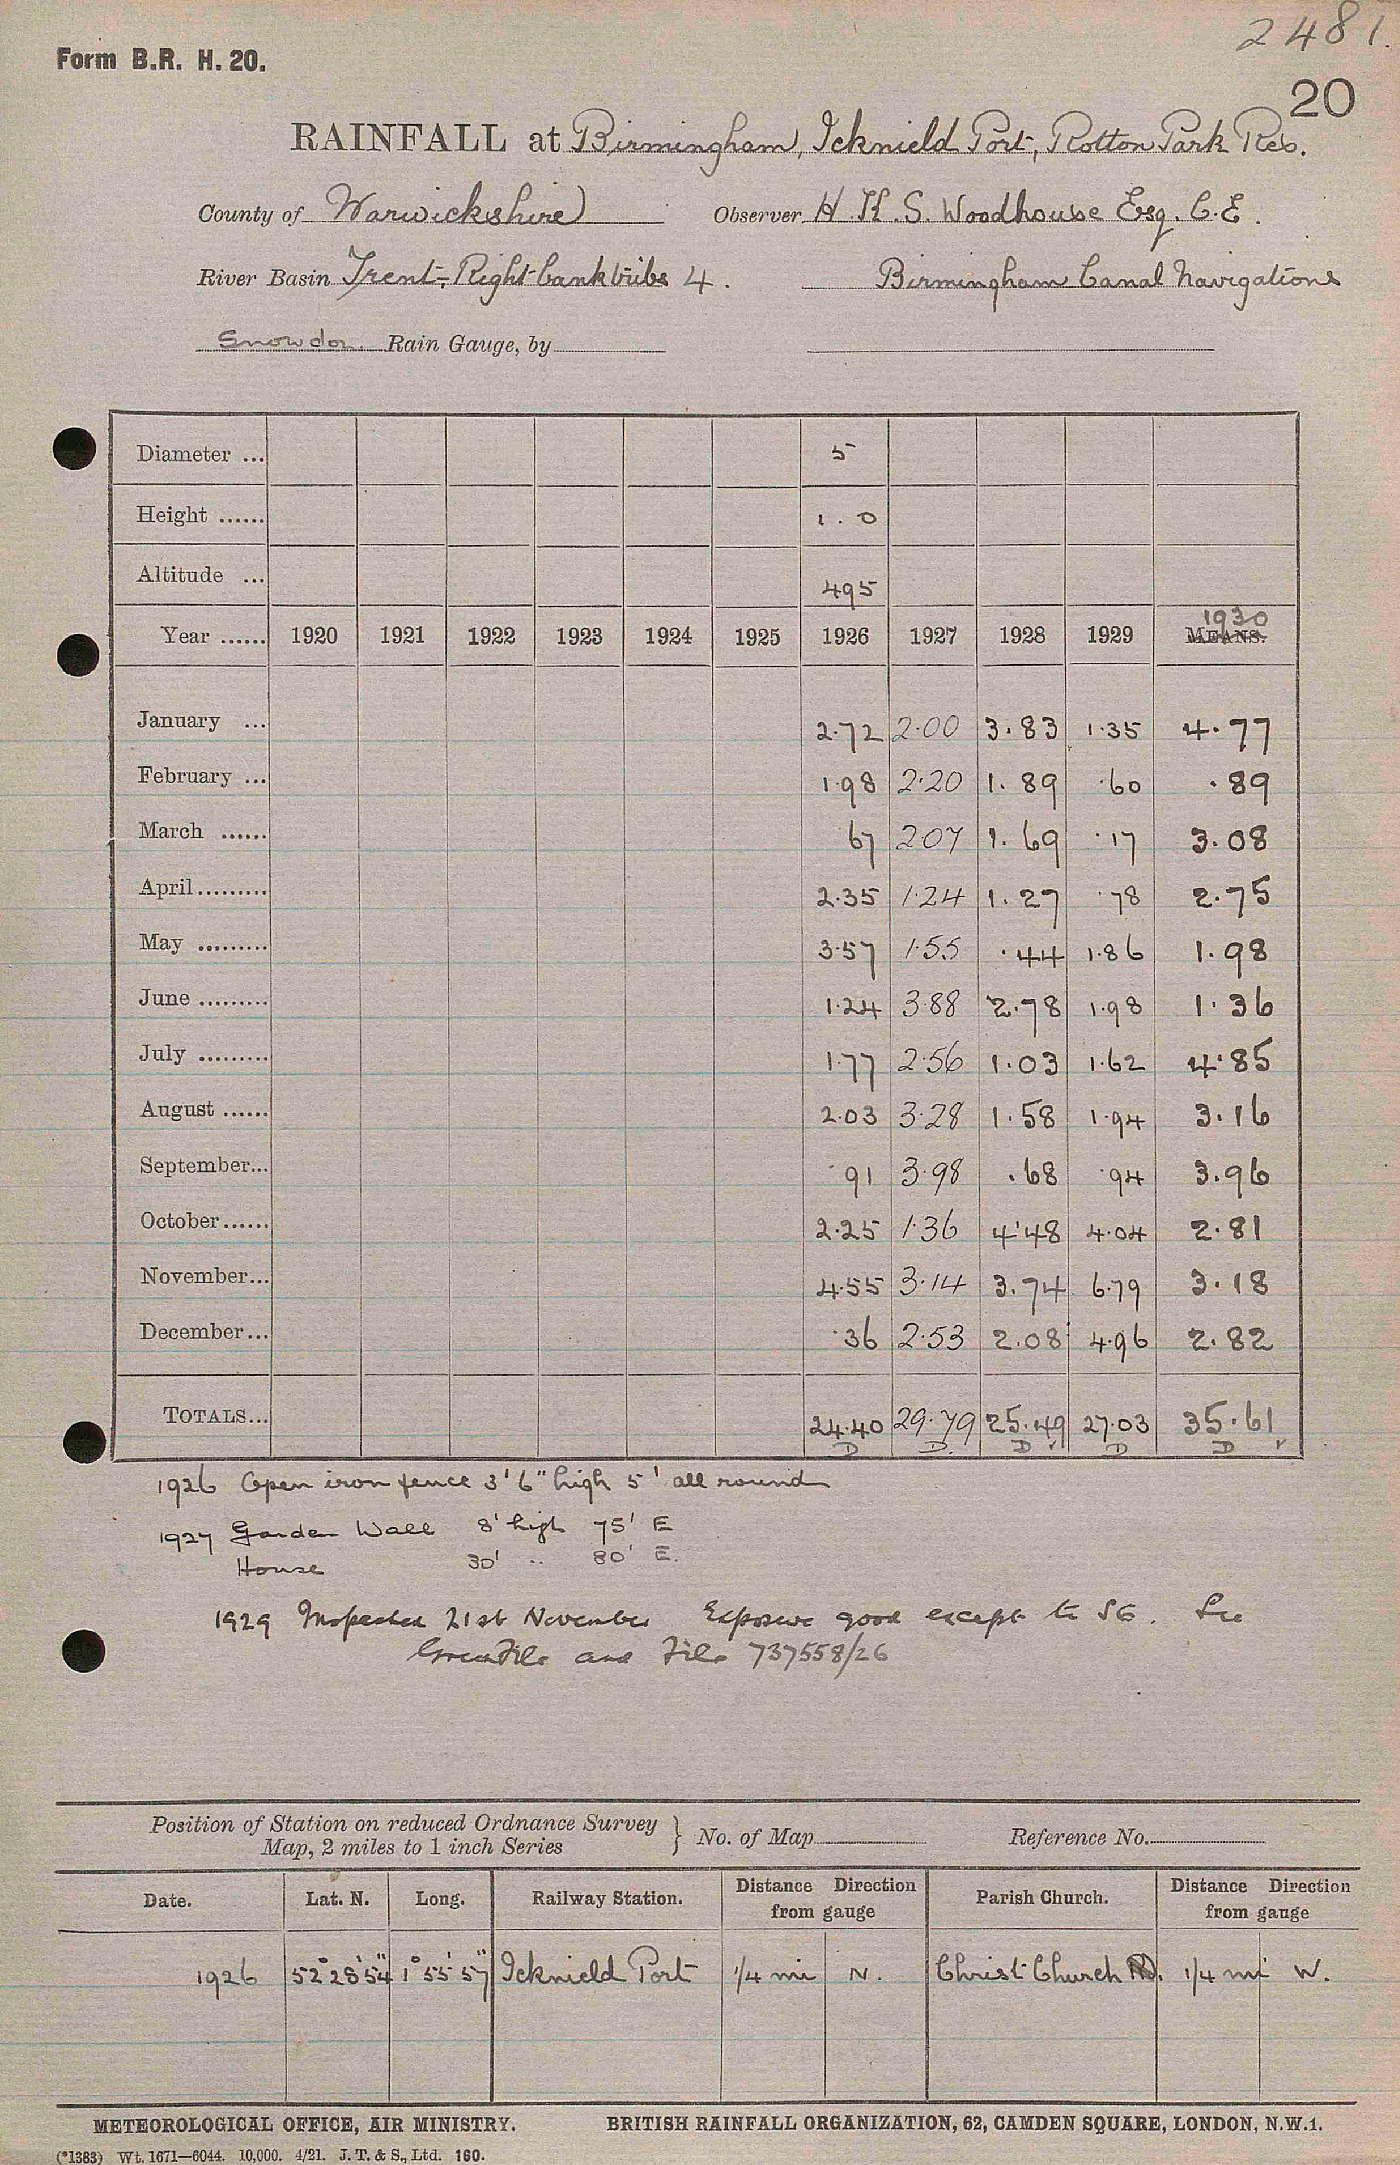 2481.
Form B.R. H. 20.
20
RAINFALL at Birmingham, Icknield Port, Rotton Park Res.
County of Warwickshire Observer H. K. S. Woodhouse Esq. C.E.
River Basin Trent-Right bank tribs 4. Birmingham Canal Navigations
Snowdon Rain Gauge, by
Diameter ... 5
Height ...... 1.0
Altitude ... 495
Year ...... 1920 1921 1922 1923 1924 1925 1926 1927 1928 1929 MEANS. 1930
January ... 2.72 2.00 3.83 1.35 4.77
February ... 1.98 2.20 1.89 .60 .89
March ...... 67 2.07 1.69 .17 3.08
April......... 2.35 1.24 1.27 .78 2.75
May ......... 3.57 1.55 .44 1.86 1.98
June ......... 1.24 3.88 2.78 1.98 1.36
July ......... 1.77 2.56 1.03 1.62 4.85
August ...... 2.03 3.28 1.58 1.94 3.16
September... .91 3.98 .68 .94 3.96
October...... 2.25 1.36 4.48 4.04 2.81
November... 4.55 3.14 3.74 6.79 3.18
December... .36 2.53 2.08 4.96 2.82
TOTALS... 24.40 29.79 25.49 27.03 35.61
D D. D D D
1926 Open iron fence 3' 6" high 5' all round
1927 Garden Wall 8' high 75' E
House 30' " 80' E.
1929 Inspected 21st November Exposure good except to SE. See
and File 737558/26
Position of Station on reduced Ordnance Survey
Map, 2 miles to 1 inch Series } No. of Map Reference No.
Date. Lat. N. Long. Railway Station. Distance Direction from gauge Parish Church. Distance Direction from gauge
1926 52° 28' 54" 1° 55' 57" Icknield Port 1/4 mi N. Christ Church 1/4 mi W.
METEOROLOGICAL OFFICE, AIR MINISTRY. BRITISH RAINFALL ORGANIZATION, 62, CAMDEN SQUARE, LONDON, N.W.1.
(*1383) Wt. 1671—6044. 10,000. 4/21. J. T. & S., Ltd. 160.